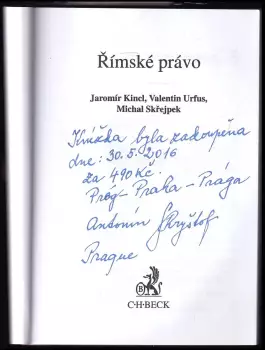 Římské právo
Jaromír Kincl, Valentin Urfus,
Michal Skřejpek
Knížka byla zakoupena
dne: 30.5.2016
za 490 Kč.
Prág - Praha - Prága
Antonín Kryštof
Prague
C·H·BECK